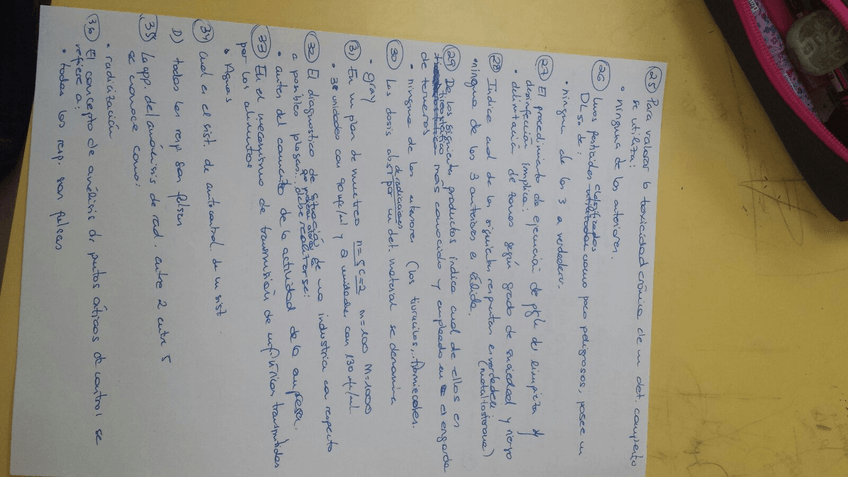 25 Para valorar la toxicidad crónica de un det. compuesto
se utiliza:
• ninguna de las anteriores.
26 Unos pesticidas clasificados como poco peligrosos, posee un
DL50 de:
• ninguna de las 3 es verdadera.
27 El procedimiento de ejecución de de limpieza y
desinfección implica:
• delimitación de zonas según grado de suciedad y riesgo
28 Indica cual de las siguientes respuestas es verdadera
ninguna de las 3 anteriores es válida. (metiltestosterona)
29 De los siguientes productos indica cual de ellos es
mas conocido y empleado en el engorde
de terneros
• ninguna de las anteriores (los tiuracilos,
30 Las dosis de radicaciones absor por un det. material se denomina
• Gray
31 En un plan de muestreo n=5 c=2 m=100 M=1000
• 3 unidades con 90 y 2 unidades con 130
32 El diagnostico de situación de una industria con respecto
a posibles plagas, debe realizarse:
• antes del comienzo de la actividad de la empresa.
33 Es el mecanismo de transmisión de transmitidas
por los alimentos
• Aguas
34 Cual es el sist. de autocontrol de un sist.
D) todas las resp son falsas
35 La app. del análisis de rad. entre 2 entre 5
se conoce como:
• radicización
36 El concepto de análisis de puntos críticos de control se
refiere a:
• todas las resp. son falsas